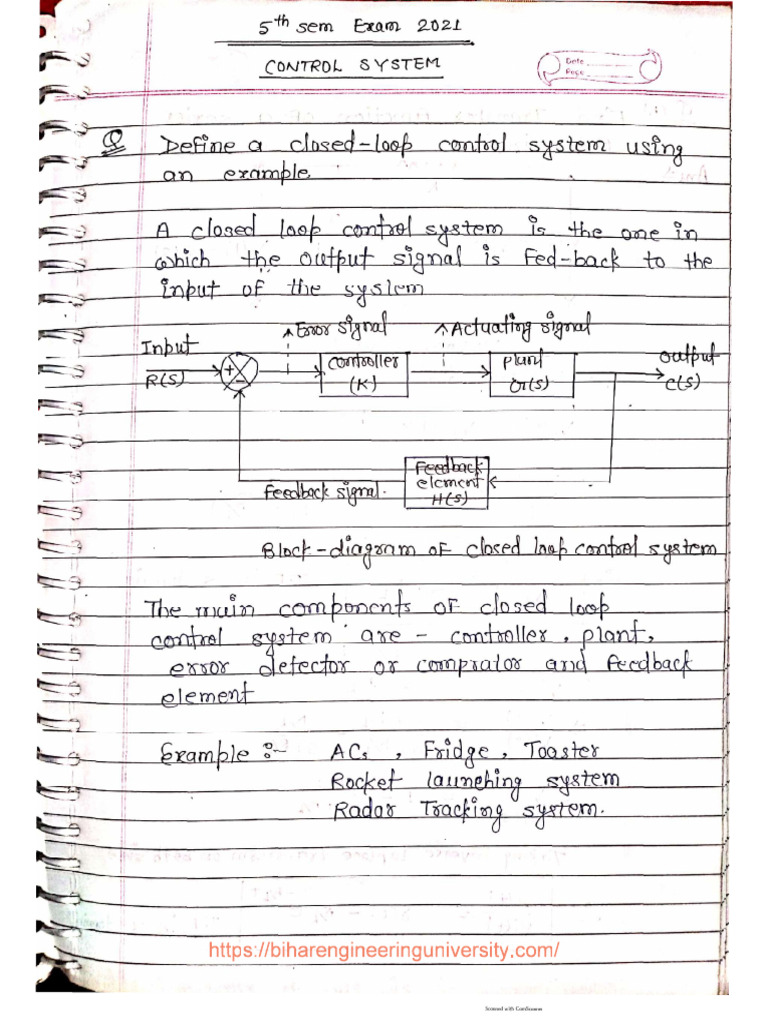 5th sem Exam 2021
CONTROL SYSTEM
Date
Page
Q Define a closed-loop control system using
an example.
A closed loop control system is the one in
which the output signal is Fed-back to the
input of the system
Error signal
Actuating signal
Input
R(S)
+
-
controller
(K)
plant
G(S)
output
C(S)
Feedback signal.
Feedback
element
H(S)
Block-diagram of closed loop control system
The main components of closed loop
control system are - controller, plant,
error detector or comprator and feedback
element
Example :- ACs, Fridge, Toaster
Rocket launching system
Radar Tracking system.
https://biharengineeringuniversity.com/
Scanned with CamScanner